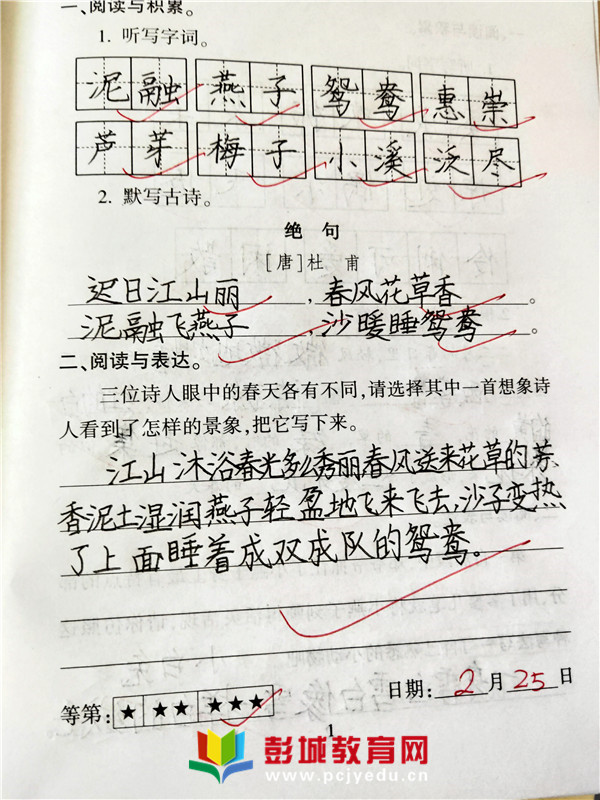 一、阅读与积累。
1. 听写字词。
泥融 燕子 鸳鸯 惠崇
芦芽 梅子 小溪 泛尽
2. 默写古诗。
绝 句
[唐]杜 甫
迟日江山丽,春风花草香。
泥融飞燕子,沙暖睡鸳鸯。
二、阅读与表达。
三位诗人眼中的春天各有不同,请选择其中一首想象诗
人看到了怎样的景象,把它写下来。
江山沐浴春光多么秀丽春风送来花草的芳
香泥土湿润燕子轻盈地飞来飞去,沙子变热
了上面睡着成双成队的鸳鸯。
日期:2月25日
等第:★ ★★ ★★★
1
彭城教育网
www.pcjyedu.cn